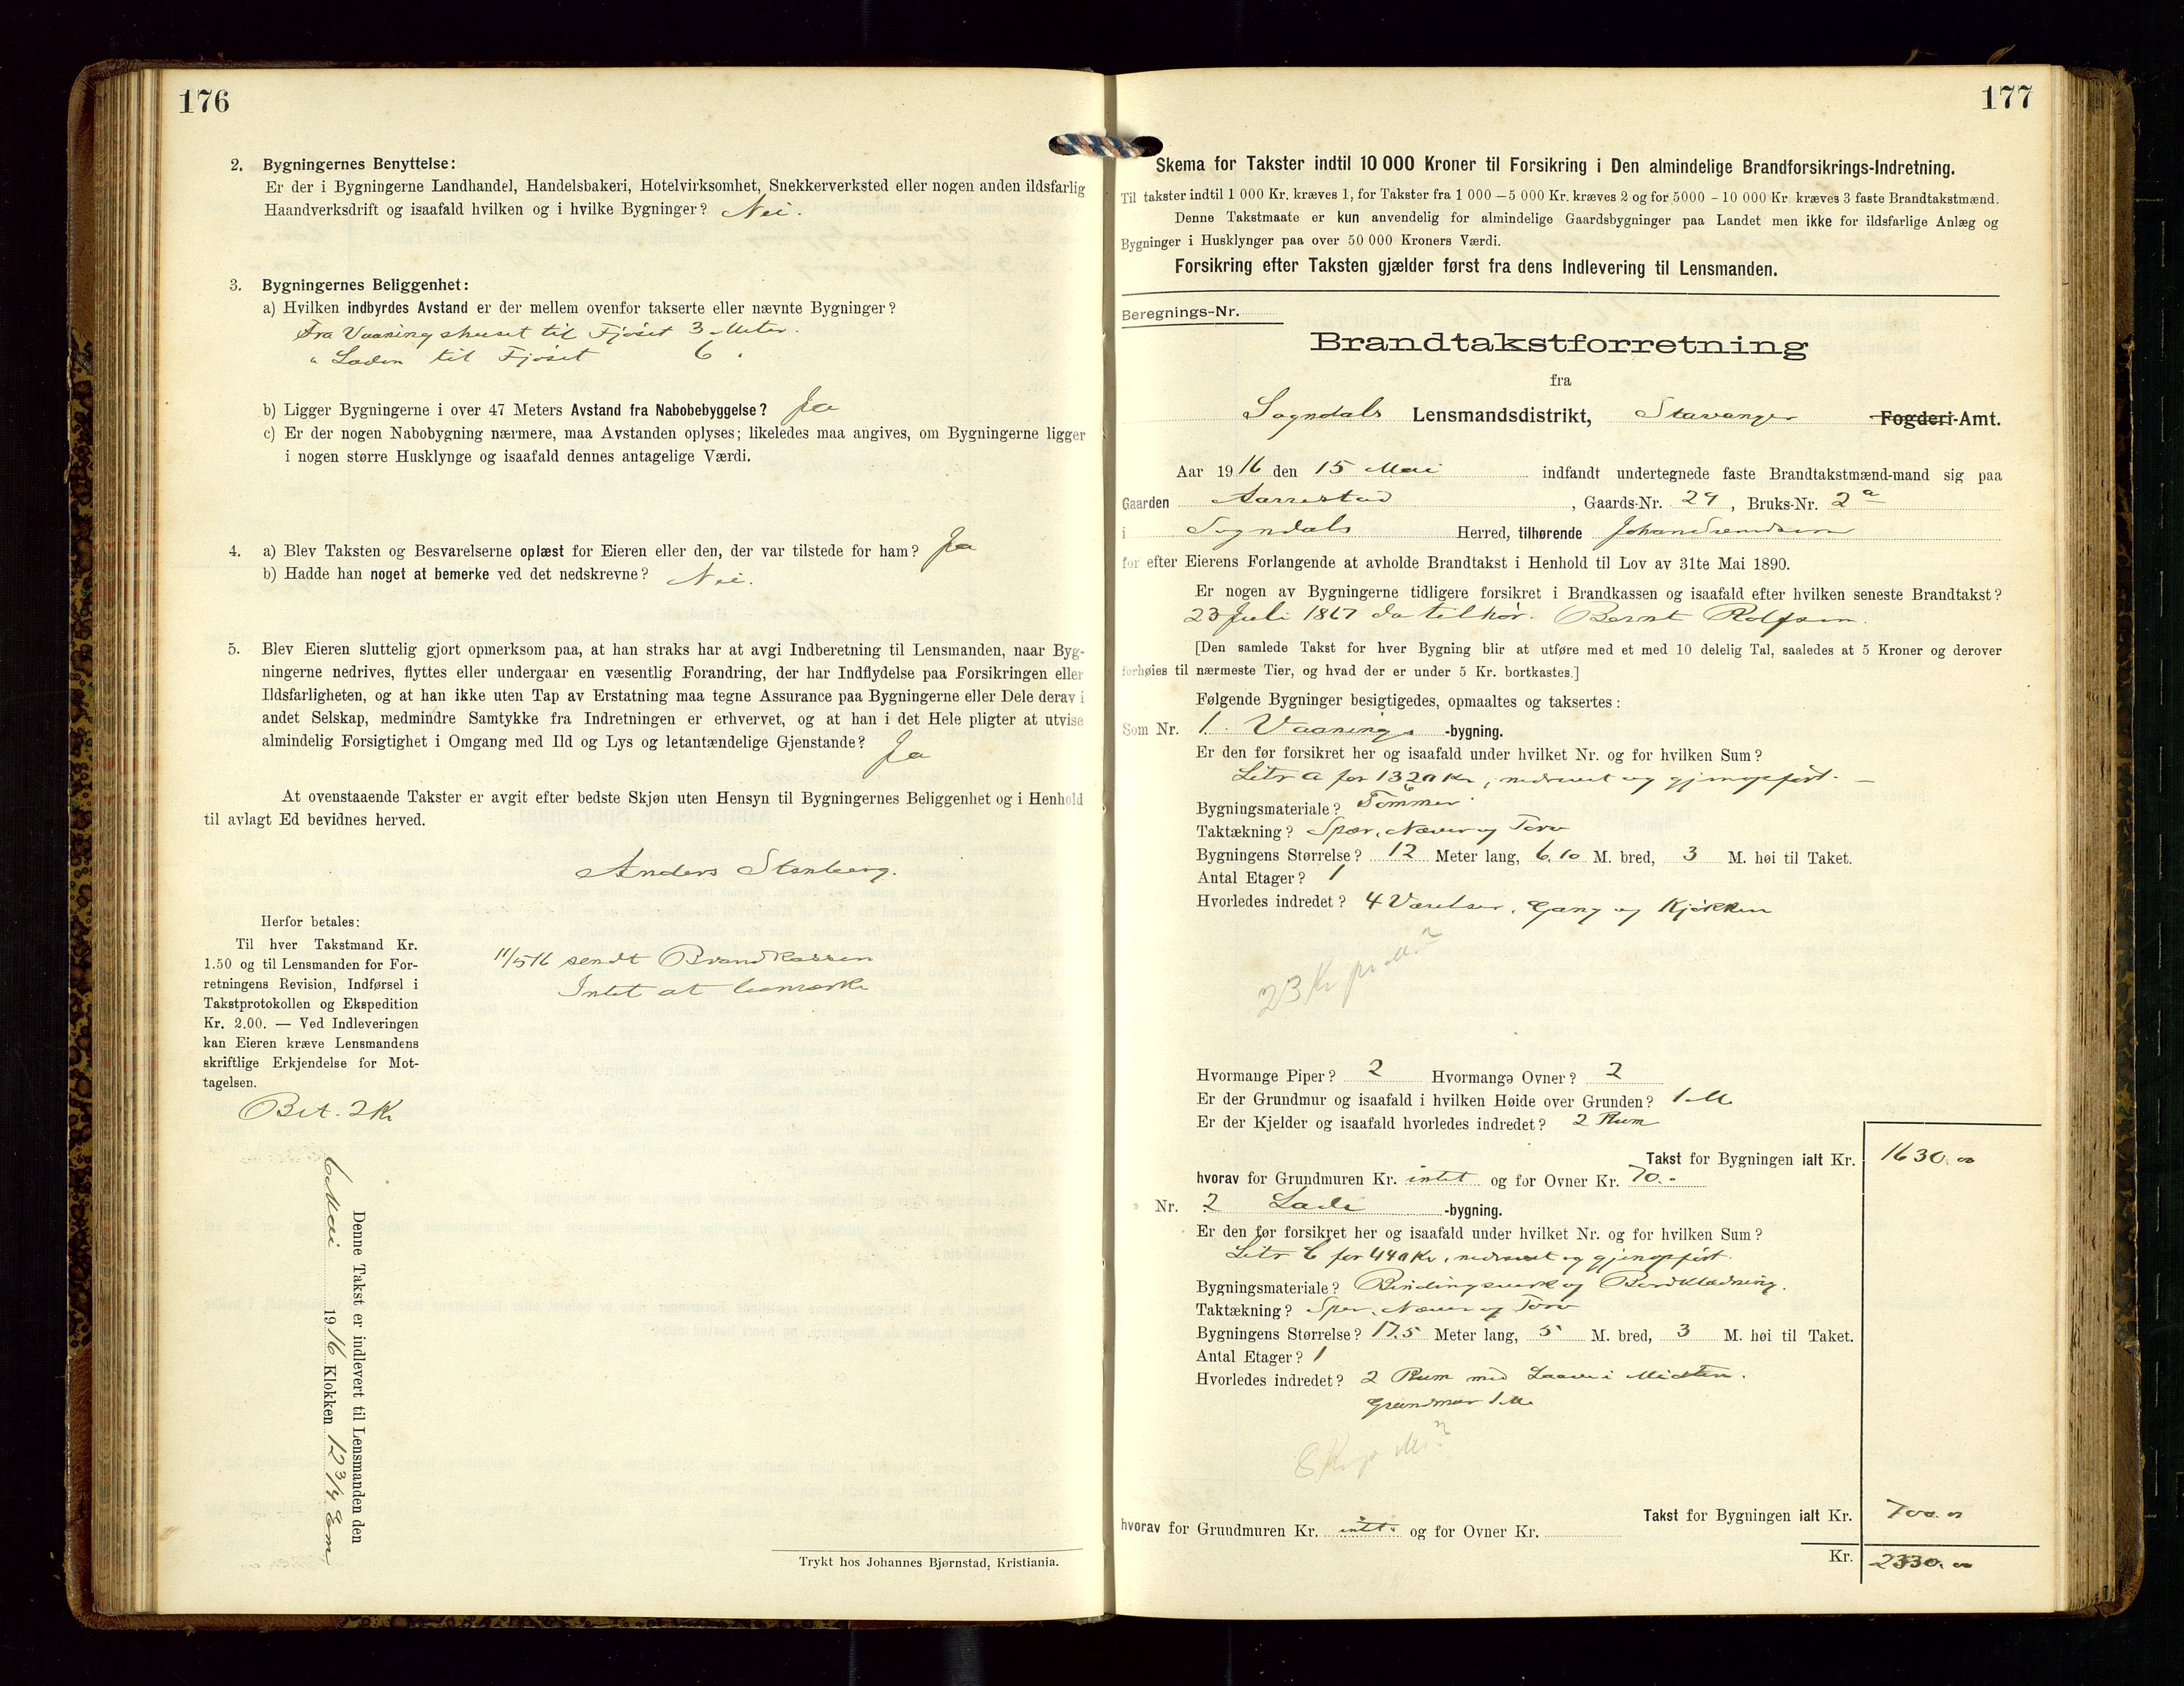 176
2. Bygningernes Benyttelse:
Er der i Bygningerne Landhandel, Handelsbakeri, Hotelvirksomhet, Snekkerverksted eller nogen anden ildsfarlig
Haandverksdrift og isaafald hvilken og i hvilke Bygninger? Nei.
3. Bygningernes Beliggenhet:
a) Hvilken indbyrdes Avstand er der mellem ovenfor takserte eller nævnte Bygninger?
Fra Vaaningshuset til Fjøset 3 Meter.
" Laden til Fjøset 6 "
b) Ligger Bygningerne i over 47 Meters Avstand fra Nabobebyggelse? Ja
c) Er der nogen Nabobygning nærmere, maa Avstanden oplyses; likeledes maa angives, om Bygningerne ligger
i nogen større Husklynge og isaafald dennes antagelige Værdi.
4. a) Blev Taksten og Besvarelserne oplæst for Eieren eller den, der var tilstede for ham? Ja
b) Hadde han noget at bemerke ved det nedskrevne? Nei.
5. Blev Eieren sluttelig gjort opmerksom paa, at han straks har at avgi Indberetning til Lensmanden, naar Byg-
ningerne nedrives, flyttes eller undergaar en væsentlig Forandring, der har Indflydelse paa Forsikringen eller
Ildsfarligheten, og at han ikke uten Tap av Erstatning maa tegne Assurance paa Bygningerne eller Dele derav i
andet Selskap, medmindre Samtykke fra Indretningen er erhvervet, og at han i det Hele pligter at utvise
almindelig Forsigtighet i Omgang med Ild og Lys og letantændelige Gjenstande? Ja
At ovenstaaende Takster er avgit efter bedste Skjøn uten Hensyn til Bygningernes Beliggenhet og i Henhold
til avlagt Ed bevidnes herved.
Anders Stenberg.
Herfor betales:
Til hver Takstmand Kr.
1.50 og til Lensmanden for For-
retningens Revision, Indførsel i
Takstprotokollen og Ekspedition
Kr. 2.00. — Ved Indleveringen
kan Eieren kræve Lensmandens
skriftlige Erkjendelse for Mot-
tagelsen.
Bet. 2 Kr
11/5 16 sendt Brandkassen
Intet at bemærke
Denne Takst er indlevert til Lensmanden den
Mai 1916 Klokken 12 3/4 Em
Trykt hos Johannes Bjørnstad, Kristiania.
177
Skema for Takster indtil 10 000 Kroner til Forsikring i Den almindelige Brandforsikrings-Indretning.
Til takster indtil 1 000 Kr. kræves 1, for Takster fra 1 000 — 5 000 Kr. kræves 2 og for 5000 - 10 000 Kr. kræves 3 faste Brandtakstmænd.
Denne Takstmaate er kun anvendelig for almindelige Gaardsbygninger paa Landet men ikke for ildsfarlige Anlæg og
Bygninger i Husklynger paa over 50 000 Kroners Værdi.
Forsikring efter Taksten gjælder først fra dens Indlevering til Lensmanden.
Beregnings-Nr.
Brandtakstforretning
fra
Sogndals Lensmandsdistrikt, Stavanger Fogderi-Amt.
Aar 1916 den 15 Mai indfandt undertegnede faste Brandtakstmænd-mand sig paa
Gaarden Aarrestad, Gaards-Nr. 29, Bruks-Nr. 2 a
i Sogndals Herred, tilhørende Johan Svendsen
for efter Eierens Forlangende at avholde Brandtakst i Henhold til Lov av 31te Mai 1890.
Er nogen av Bygningerne tidligere forsikret i Brandkassen og isaafald efter hvilken seneste Brandtakst?
23 Juli 1867 da tilhør. Bernt Rolfsen.
[Den samlede Takst for hver Bygning blir at utføre med et med 10 delelig Tal, saaledes at 5 Kroner og derover
forhøies til nærmeste Tier, og hvad der er under 5 Kr. bortkastes.]
Følgende Bygninger besigtigedes, opmaaltes og taksertes:
Som Nr. 1. Vaanings -bygning.
Er den før forsikret her og isaafald under hvilket Nr. og for hvilken Sum?
Litr a for 1320 Kr, nedrevet og gjenopført. —
Bygningsmateriale? Tømmer
Taktækning? Spær, Næver og Torv
Bygningens Størrelse? 12 Meter lang, 6,10 M. bred, 3 M. høi til Taket.
Antal Etager? 1
Hvorledes indredet? 4 Værelser, Gang og Kjøkken
23 Kr pr M.²
Hvormange Piper? 2 Hvormange Ovner? 2
Er der Grundmur og isaafald i hvilken Høide over Grunden? 1 M.
Er der Kjelder og isaafald hvorledes indredet? 2 Rum
Takst for Bygningen ialt Kr. 1630.00
hvorav for Grundmuren Kr. intet og for Ovner Kr. 70.-
" Nr. 2 Lade -bygning.
Er den før forsikret her og isaafald under hvilket Nr. og for hvilken Sum?
Litr C for 440 Kr, nedrevet og gjenopført.
Bygningsmateriale? Bindingsverk og Bordklædning.
Taktækning? Spær, Næver og Torv
Bygningens Størrelse? 17.5 Meter lang, 5 M. bred, 3 M. høi til Taket.
Antal Etager? 1
Hvorledes indredet? 2 Rum med Laave i Midten.
Grundmur 1 M.
8 Kr p M.²
Takst for Bygningen ialt Kr. 700.00
hvorav for Grundmuren Kr. intet. og for Ovner Kr.
Kr. 2330.00